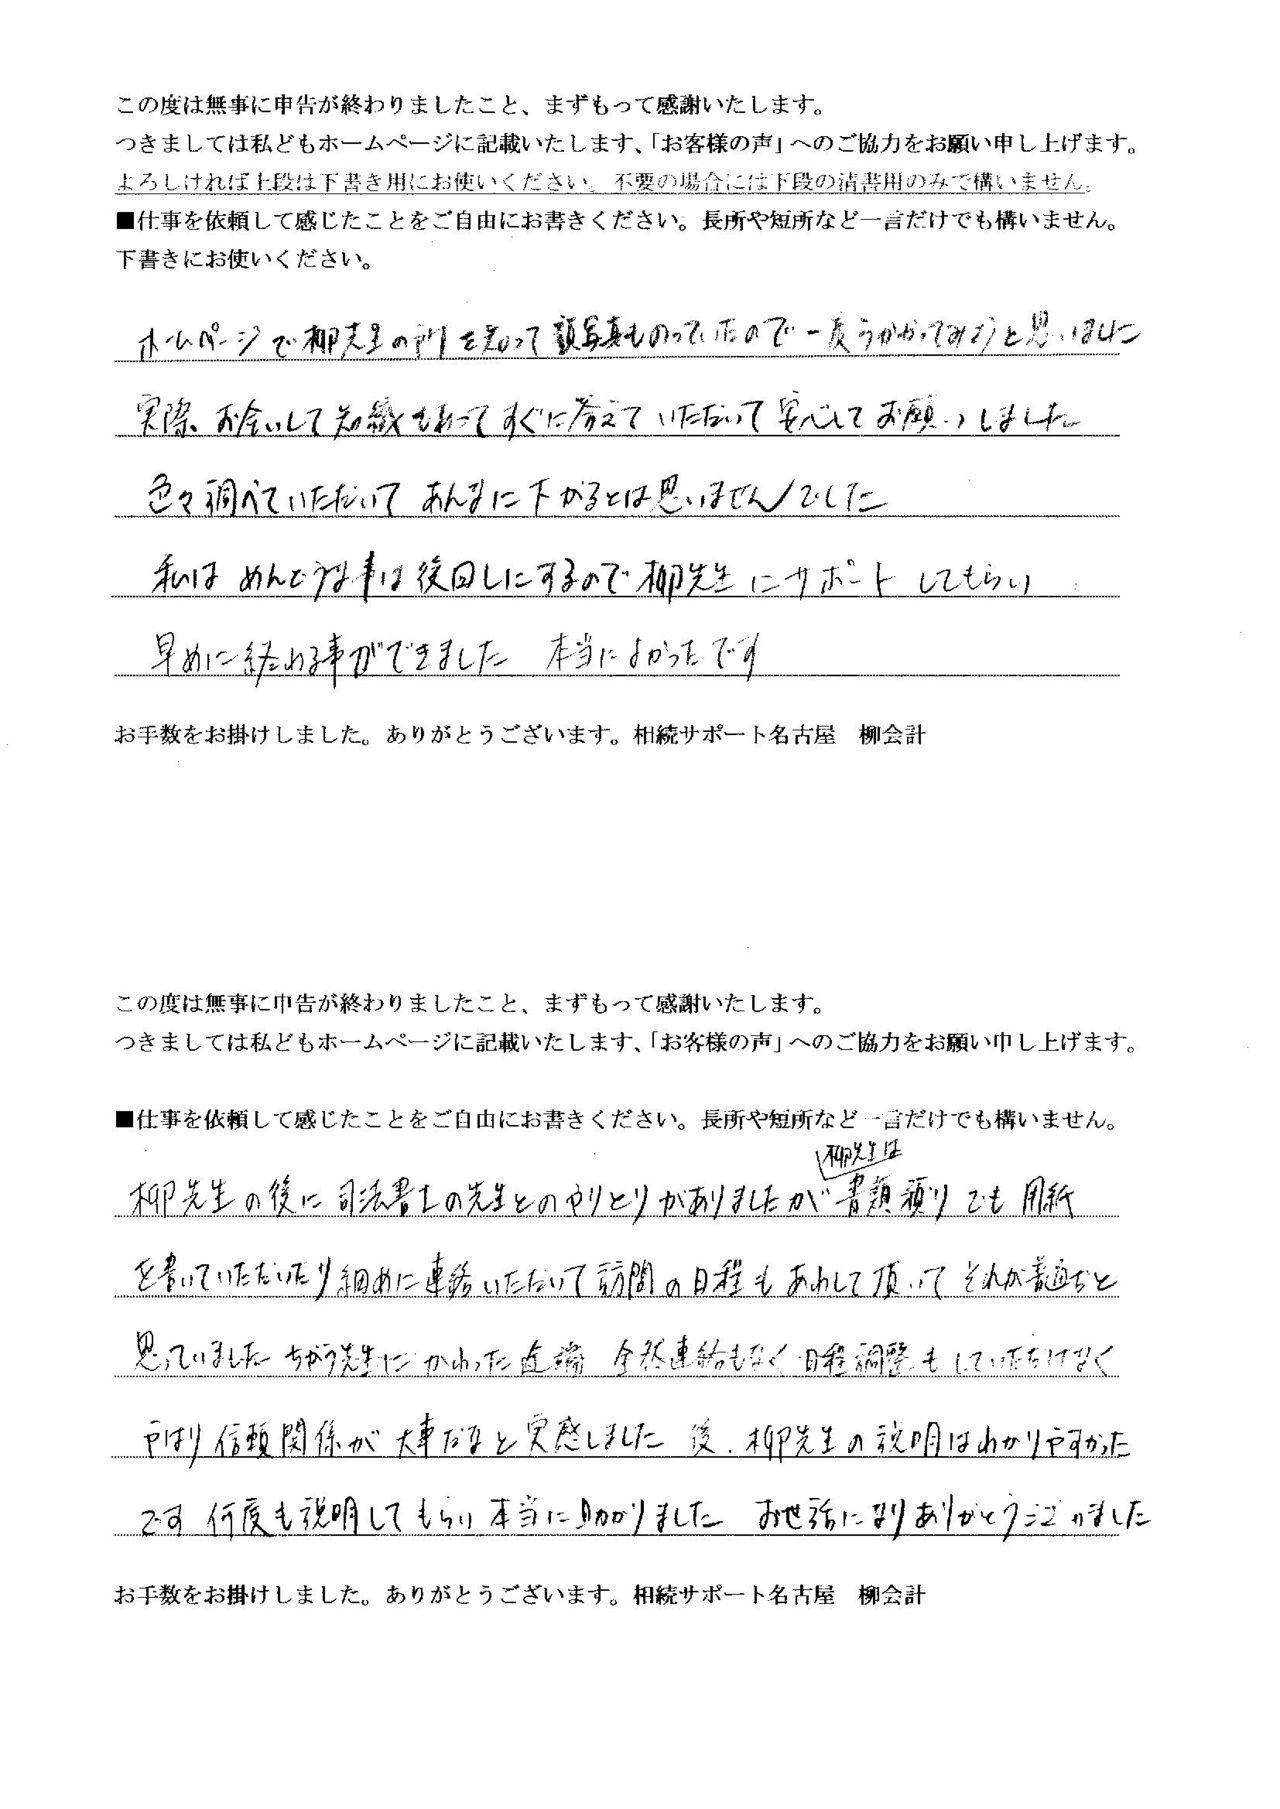 この度は無事に申告が終わりましたこと、まずもって感謝いたします。
つきましては私どもホームページに記載いたします、「お客様の声」へのご協力をお願い申し上げます。
よろしければ上段は下書き用にお使いください。不要の場合には下段の清書用のみで構いません。
■仕事を依頼して感じたことをご自由にお書きください。長所や短所など一言だけでも構いません。
下書きにお使いください。
ホームページで柳先生の所を知って顔写真ものっていたので一度うかがってみようと思いました
実際、お会いして知識もあってすぐに答えていただいて安心してお願いしました
色々調べていただいてあんなに下がるとは思いませんでした
私はめんどうな事は後回しにするので柳先生にサポートしてもらい
早めに終われる事ができました 本当によかったです
お手数をお掛けしました。ありがとうございます。相続サポート名古屋 柳会計
この度は無事に申告が終わりましたこと、まずもって感謝いたします。
つきましては私どもホームページに記載いたします、「お客様の声」へのご協力をお願い申し上げます。
■仕事を依頼して感じたことをご自由にお書きください。長所や短所など一言だけでも構いません。
柳先生は
柳先生の後に司法書士の先生とのやりとりがありましたが書類預りでも用紙
を書いていただいたり細めに連絡いただいて訪問の日程もあわして頂いてそれが普通だと
思っていました ちがう先生にかわった途端 全然連絡もなく日程調整もしていただけなく
やはり信頼関係が大事だなと実感しました 後、柳先生の説明はわかりやすかった
です 何度も説明してもらい本当に助かりました お世話になりありがとうございました
お手数をお掛けしました。ありがとうございます。相続サポート名古屋 柳会計